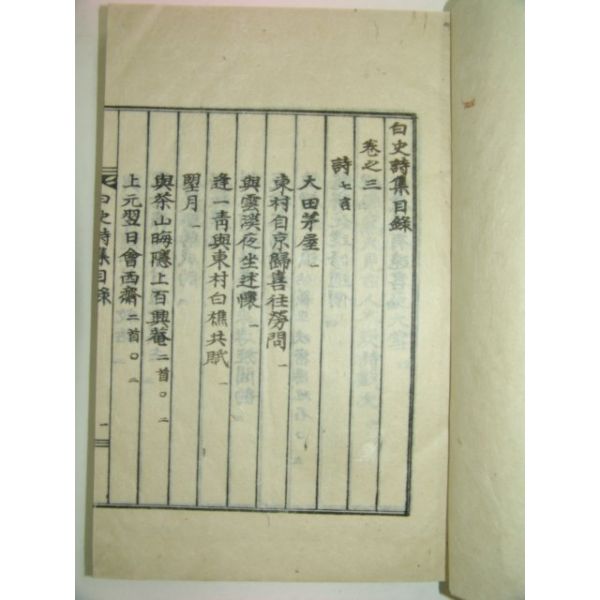 白史詩集目錄
卷之三
詩 七言
大田茅屋 一
東村自京歸喜往勞問 一
與雲漢夜坐述懷 一
逢一靑與東村白樵共賦 一
朢月 一
與茶山晦隱上百興菴 二首〇二
上元翌日會西齋 二首〇二
白史詩集目錄 一